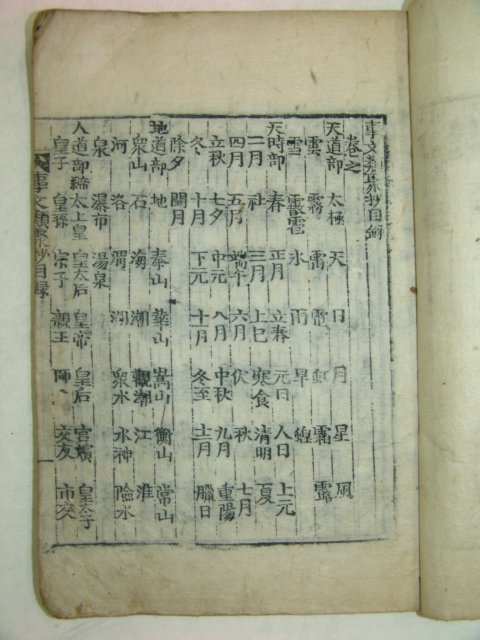 事文類聚抄目錄
卷之
天道部 太極 天 日 月 星 風
雲 霧 雷 虹 霜 露
雪 霰雹 氷 雨 旱 蝗
天時部 正月 立春 元日 人日 上元
二月 社 三月 上巳 寒食 清明 夏
四月 五月 端午 六月 伏 秋 七月
立秋 七夕 中元 八月 中秋 九月 重陽
冬 十月 下元 十一月 冬至 十二月 臘日
除夕 閏月
地道部 地 泰山 華山 嵩山 衡山 常山
衆山 石 海 潮 觀潮 江 淮
河 洛 渭 湖 衆水 水神 險水
泉 瀑布 湯泉
人道部 締 太上皇 皇太后 皇帝 皇后 宮嬪 皇太子
皇子 皇孫 宗子 親王 師 交友 市交
事文類聚抄目錄